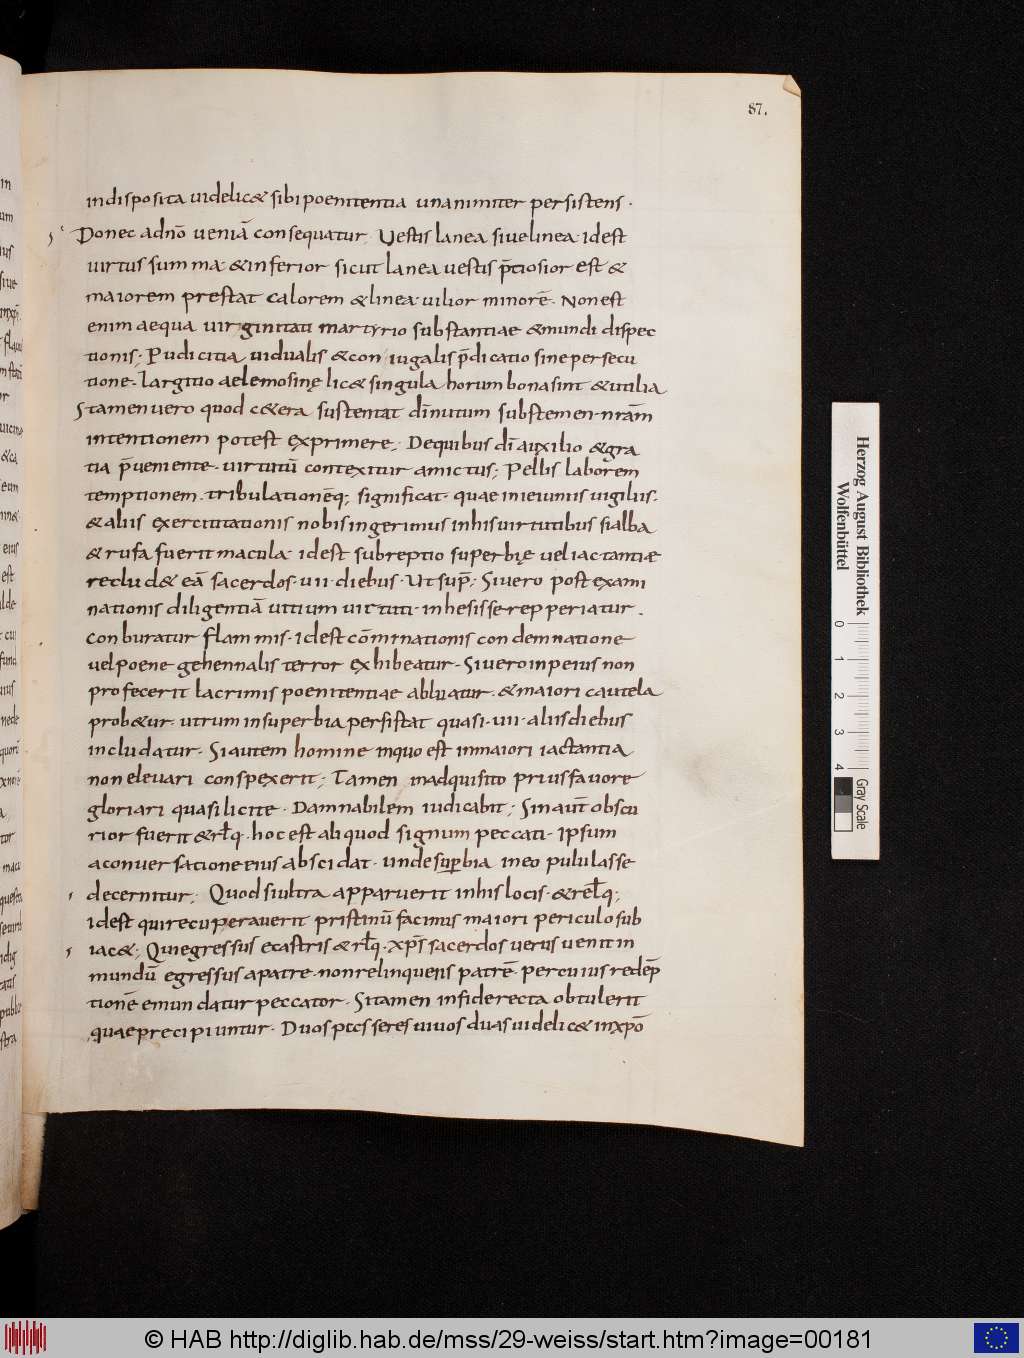 87.
indisposita uidelic& sibi poenitentia unanimiter persistens .
Donec adnō ueniā consequatur. Uestis lanea siue linea idest
uirtus summa & inferior sicut lanea uestis p̄tiosior est &
maiorem prestat calorem & linea uilior minorē. Non est
enim aequa uirginitati martyrio substantiae & mundi dispec
tionis; Pudicitia uidualis & coniugalis p̄dicatio sine persecu
tione. Largitio aelemosinę lic& singula horum bona sint & utilia
Stamen uero quod c&era sustentat diuīnutum substemen nr̄am
intentionem potest exprimere; De quibus dī auxilio & gra
tia p̄ueniente. uirtutū contextur amictus; Pellis laborem
temptionem. tribulationēq; significat. quae in ieiuniis uigiliis.
& aliis exercitationis nobis ingerimus in his uirtutibus si alba
& rufa fuerit macula idest subreptio superbię uel iactantiae
reclud& eā sacerdos. uii. diebus. Ut sup̄; Si uero post exami
nationis diligentiā uitium uirtuti. inhesisse repperiatur .
Conburatur flammis. idest cōminationis condemnatione
uel poene gehennalis terror exhibeatur. Si uero in peius non
profecerit lacrimis poenitentiae abluatur. & maiori cautela
prob&ur. utrum in superbia persistat quasi. uii. aliis diebus
includatur. Si autem homine in quo est in maiori iactantia
non eleuari conspexerit; Tamen in adquisito prius fauore
gloriari quasi licite. Damnabilem iudicabit; Sin aut̄ obscu
rior fuerit & rl̄q. hoc est aliquod signum peccati. Ipsum
a conuersatione eius abscidat. unde supbia in eo pululasse
decernitur; Quod si ultra apparuerit in his locis. & rel̄q;
idest qui recuperauerit pristinū facinus maiori periculo sub
iac&; Qui egressus e castris & rl̄q. xp̄s sacerdos uerus uenit in
mundū egressus a patre. non relinquens patrē. per cuius redēp
tionē emundatur peccator. Si tamen in fide recta obtulerit
quae precipiuntur. Duos passeres uiuos duas uidelic& in xp̄o
Herzog August Bibliothek
Wolfenbüttel
0 1 2 3 4
Gray Scale
© HAB http://diglib.hab.de/mss/29-weiss/start.htm?image=00181